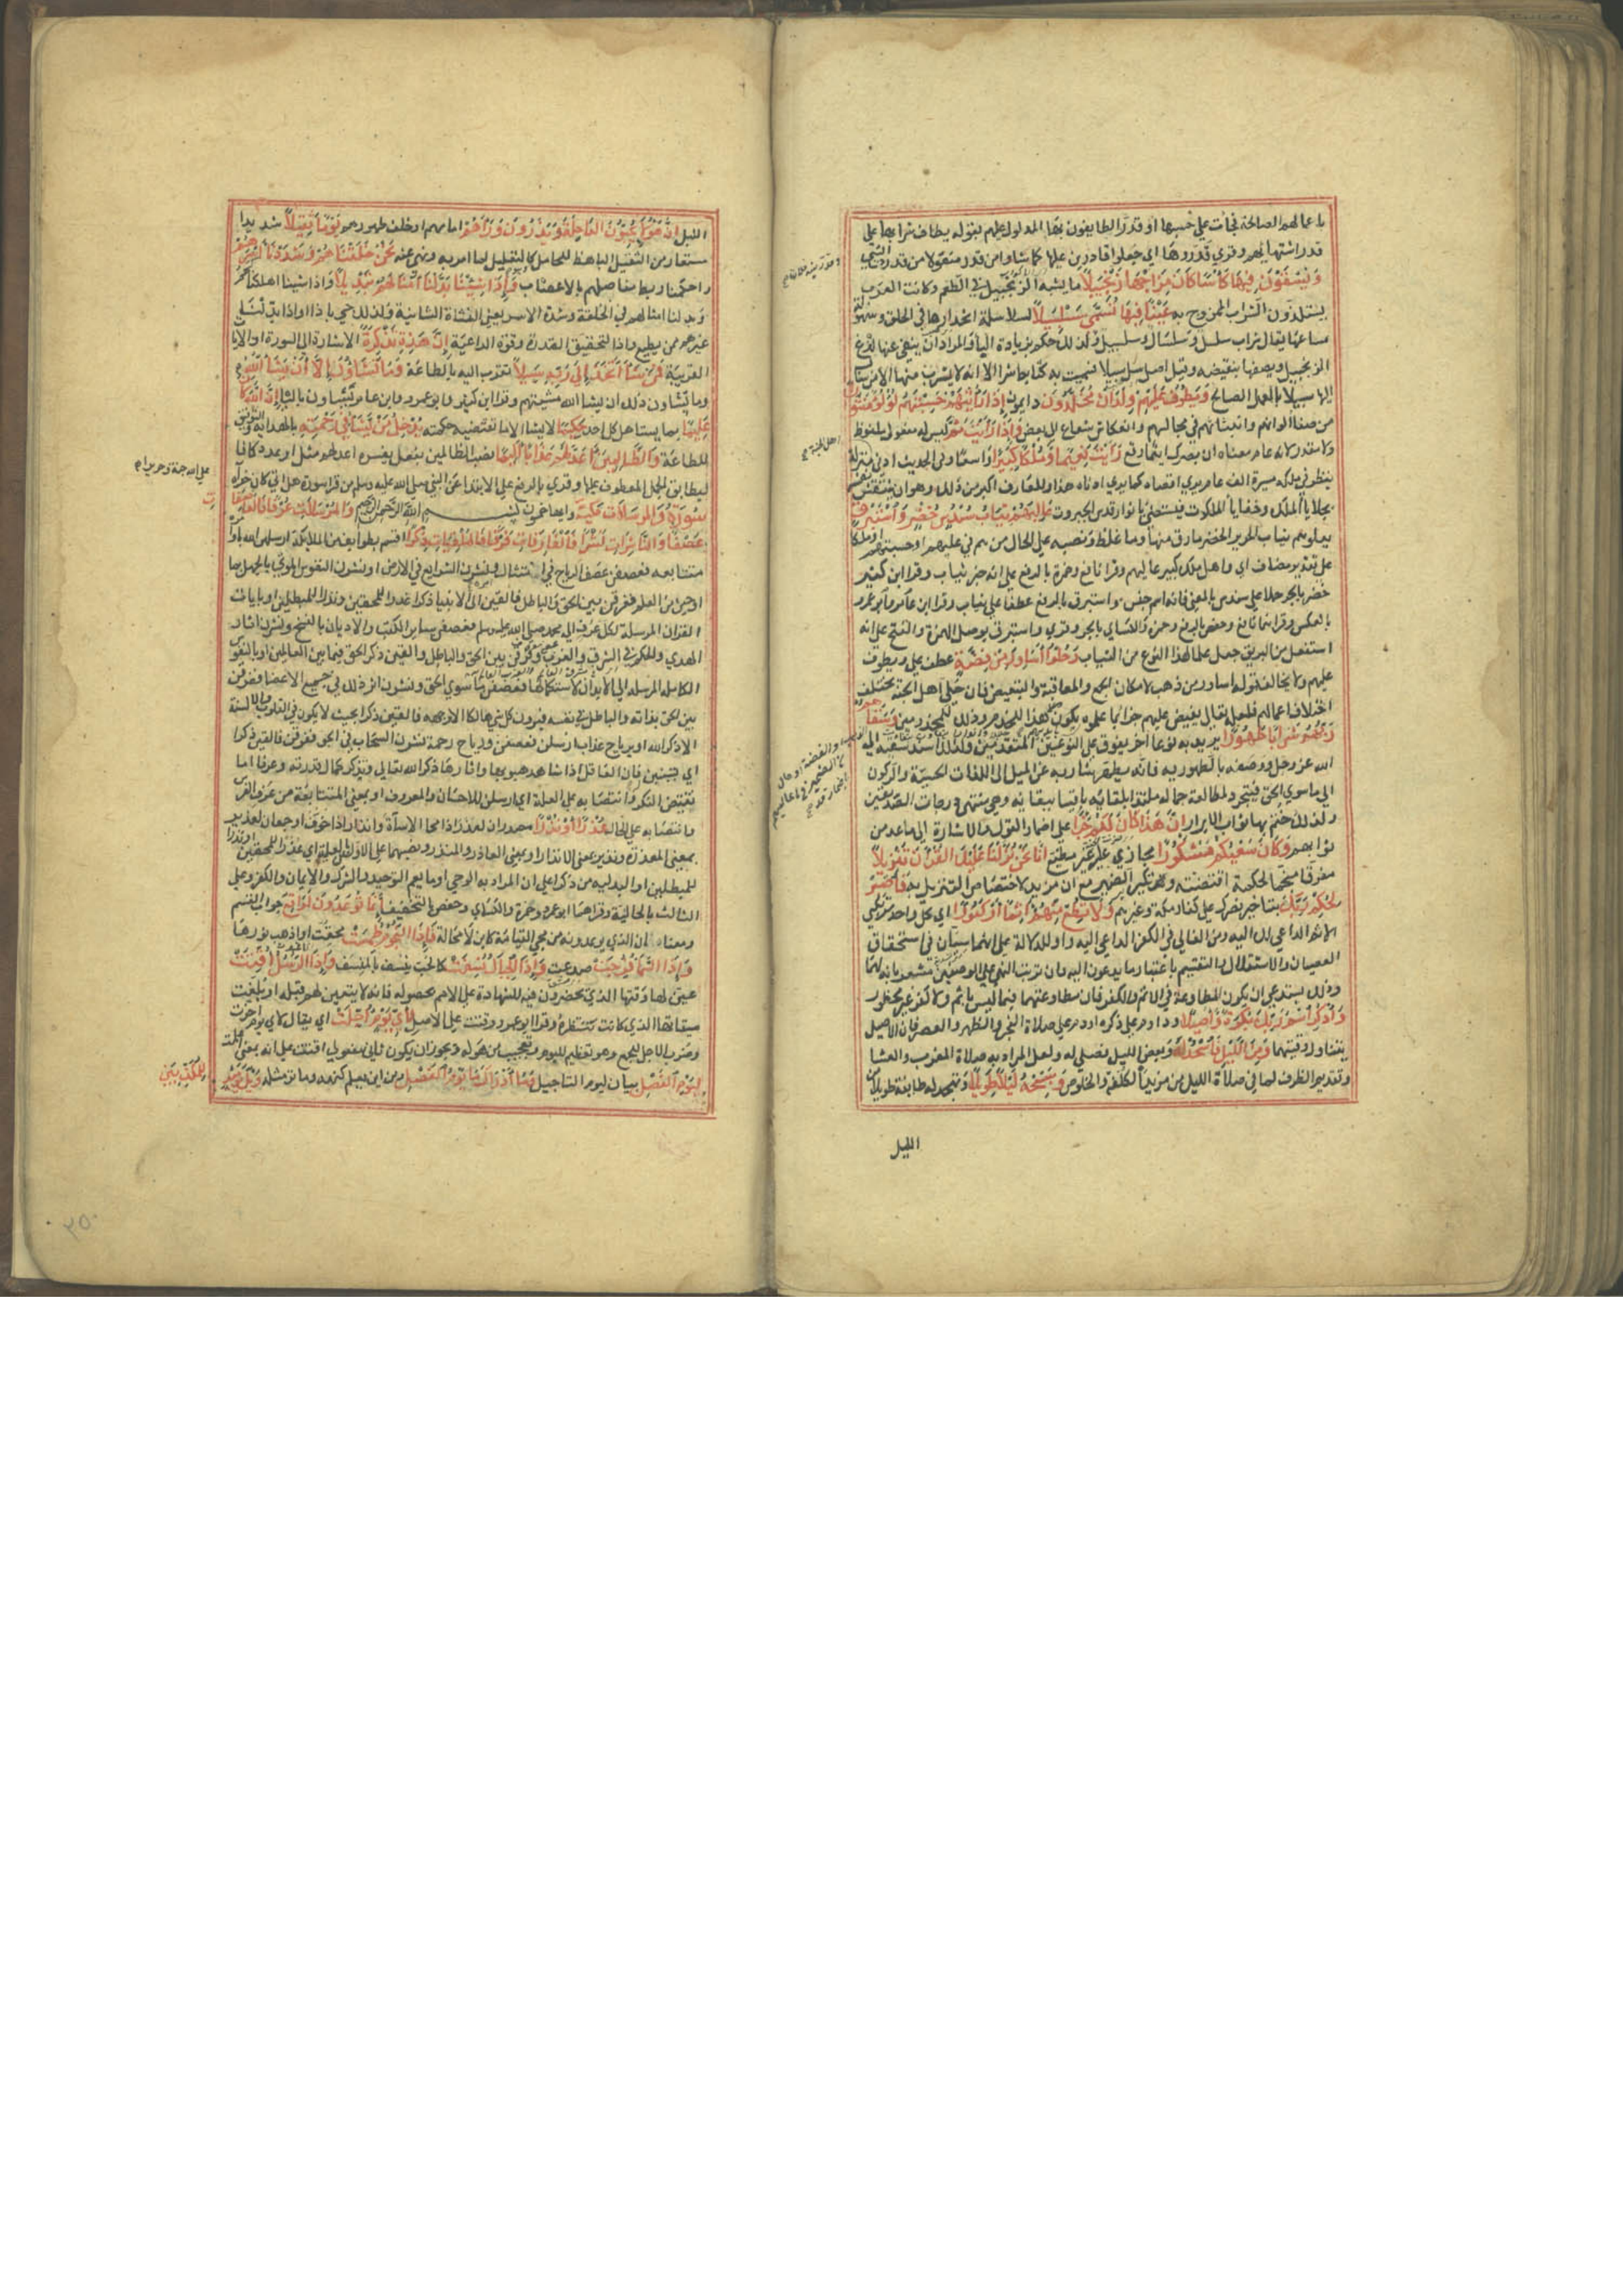 باعمالهم الصالحة فجات على حسبها او قدر الطايفون بها المدلول عليهم بقوله يطاف شرابها على
قدر اشتهائهم وقري قدروها اي جعلوا قادرين عليها كما شاوا من قدر منقولا من قدرت الشي
وَيُسْقَوْنَ فِيهَا كَأْسًا كَانَ مِزَاجُهَا زَنْجَبِيلًا ما يشبه الزنجبيل في الطعم وكانت العرب
يستلذون الشراب الممزوج به عَيْنًا فِيهَا تُسَمَّى سَلْسَبِيلًا لسلاسة انحدارها في الحلق وسهولة
مساغها يقال شراب سلسل وسلسال وسلسبيل ولذلك حكم بزيادة البا والمراد ان ينفي عنها لذع
الزنجبيل ويصفها بنقيضه وقيل اصله سل سبيلا فسميت به كتابط شرا لانه لا يشرب منها الا من سال
اليها سبيلا بالعمل الصالح وَيَطُوفُ عَلَيْهِمْ وِلْدَانٌ مُخَلَّدُونَ دايمون إِذَا رَأَيْتَهُمْ حَسِبْتَهُمْ لُؤْلُؤًا مَنْثُورًا
من صفا الوانهم وانبثاثهم في مجالسهم وانعكاس شعاع بعضهم الى بعض وَإِذَا رَأَيْتَ ثَمَّ ليس له مفعول ملفوظ
ولا مقدر لانه عام معناه ان بصرك اينما وقع رَأَيْتَ نَعِيمًا وَمُلْكًا كَبِيرًا واسعا وفي الحديث ادنى اهل الجنة منزلة
ينظر في ملكه مسيرة الف عام يرى اقصاه كما يرى ادناه هذا وللعارف اكبر من ذلك وهو ان تنتقش نفسه
بجلايا الملك وخفايا الملكوت فيستضي بانوار قدس الجبروت عَالِيَهُمْ ثِيَابُ سُنْدُسٍ خُضْرٌ وَإِسْتَبْرَقٌ
يعلوهم ثياب الحرير الخضر ما رق منها وما غلظ ونصبه على الحال من هم في عليهم او حسبتهم او ملكا
على تقدير مضاف اي واهل ملك كبير عاليهم وقرا نافع وحمزة بالرفع على انه خبر ثياب وقرا ابن كثير
خضر بالجر حملا على سندس بالمعنى فانه اسم جنس واستبرق بالرفع عطفا على ثياب وقرا ابن عامر وابو عمرو
بالعكس وقراهما نافع وحفص بالرفع وحمزة والكساي بالجر وقري واستبرق بوصل الهمزة والفتح على انه
استفعل من البريق جعل علما لهذا النوع من الثياب وَحُلُّوا أَسَاوِرَ مِنْ فِضَّةٍ عطف على ويطوف
عليهم ولا يخالفه قوله اساور من ذهب لامكان الجمع والمعاقبة والتبعيض فان حلي اهل الجنة يختلف
اختلاف اعمالهم فلعله تعالى يفيض عليهم جزا لما عملوه يكون هذا للخدم وذلك للمخدومين وَسَقَاهُمْ
رَبُّهُمْ شَرَابًا طَهُورًا يريد به نوعا اخر يفوق على النوعين المتقدمين ولذلك اسند سقيه الى
الله عز وجل ووصفه بالطهورية فانه يطهر شاربه عن الميل الى اللذات الحسية والركون
الى ما سوى الحق فيتجرد لمطالعة جماله ملتذا بلقائه باقيا ببقائه وهي منتهى درجات الصديقين
ولذلك ختم بها ثواب الابرار إِنَّ هَذَا كَانَ لَكُمْ جَزَاءً على اضمار القول والاشارة الى ما عد من
ثوابهم وَكَانَ سَعْيُكُمْ مَشْكُورًا مجازى عليه غير مضيع إِنَّا نَحْنُ نَزَّلْنَا عَلَيْكَ الْقُرْآنَ تَنْزِيلًا
مفرقا منجما لحكمة اقتضته وتكرير الضمير مع ان مزيد لاختصاص التنزيل به فَاصْبِرْ
لِحُكْمِ رَبِّكَ بتاخير نصرك على كفار مكة وغيرهم وَلَا تُطِعْ مِنْهُمْ آثِمًا أَوْ كَفُورًا اي كل واحد من مرتكب
الاثم الداعي لك اليه ومن الغالي في الكفر الداعي اليه واو للدلالة على انهما سيان في استحقاق
العصيان والاستقلال به والتقسيم باعتبار ما يدعون اليه فان ترتب النهي على الوصفين مشعر بانه لهما
وذلك يستدعي ان يكون المطاوعة في الاثم والكفر فان مطاوعتهما فيما ليس باثم ولا كفر غير محظور
وَاذْكُرِ اسْمَ رَبِّكَ بُكْرَةً وَأَصِيلًا وداوم على ذكره او دم على صلاة الفجر والظهر والعصر فان الاصيل
يتناول وقتيهما وَمِنَ اللَّيْلِ فَاسْجُدْ لَهُ وبعض الليل فصل له ولعل المراد به صلاة المغرب والعشا
وتقديم الظرف لما في صلاة الليل من مزيد الكلفة والخلوص وَسَبِّحْهُ لَيْلًا طَوِيلًا وتهجد له طايفة طويلة من
الليل
الليل إِنَّ هَؤُلَاءِ يُحِبُّونَ الْعَاجِلَةَ وَيَذَرُونَ وَرَاءَهُمْ امامهم او خلف ظهورهم يَوْمًا ثَقِيلًا شديدا
مستعار من الثقيل الباهظ للحامل كالتعليل لما امر به ونهى عنه نَحْنُ خَلَقْنَاهُمْ وَشَدَدْنَا أَسْرَهُمْ
واحكمنا ربط مفاصلهم بالاعصاب وَإِذَا شِئْنَا بَدَّلْنَا أَمْثَالَهُمْ تَبْدِيلًا واذا شينا اهلكناهم
وبدلنا امثالهم في الخلقة وشدة الاسر يعني النشاة الثانية ولذلك جي باذا او بدلنا
غيرهم ممن يطيع واذا لتحقيق القدرة وقوة الداعية إِنَّ هَذِهِ تَذْكِرَةٌ الاشارة الى السورة او الايات
القريبة فَمَنْ شَاءَ اتَّخَذَ إِلَى رَبِّهِ سَبِيلًا تقرب اليه بالطاعة وَمَا تَشَاءُونَ إِلَّا أَنْ يَشَاءَ اللَّهُ
وما تشاون ذلك الا ان يشا الله مشيتهم وقرا ابن كثير وابو عمرو وابن عامر يشاون باليا إِنَّ اللَّهَ كَانَ
عَلِيمًا بما يستاهل كل احد حَكِيمًا لا يشا الا ما تقتضيه حكمته يُدْخِلُ مَنْ يَشَاءُ فِي رَحْمَتِهِ بالهداية والتوفيق
للطاعة وَالظَّالِمِينَ أَعَدَّ لَهُمْ عَذَابًا أَلِيمًا نصب الظالمين بفعل يفسره اعد لهم مثل اوعد وكافا
ليطابق الجمل المعطوف عليها وقري بالرفع على الابتدا عن النبي صلى الله عليه وسلم من قرا سورة هل اتى كان جزاه
على الله جنة وحريرا
سورة والمرسلات مكية وايها خمسون بسم الله الرحمن الرحيم وَالْمُرْسَلَاتِ عُرْفًا فَالْعَاصِفَاتِ
عَصْفًا وَالنَّاشِرَاتِ نَشْرًا فَالْفَارِقَاتِ فَرْقًا فَالْمُلْقِيَاتِ ذِكْرًا اقسم بطوايف من الملايكة ارسلهن الله باوامره
متتابعة فعصفن عصف الرياح في امتثال امره ونشرن الشرايع في الارض او نشرن النفوس الموتى بالجهل بما
اوحين من العلم ففرقن بين الحق والباطل فالقين الى الانبيا ذكرا عذرا للمحقين ونذرا للمبطلين او بايات
القران المرسلة بكل عرف الى محمد صلى الله عليه وسلم فعصفن ساير الكتب والاديان بالنسخ ونشرن اثار
الهدى والحكم في الشرق والغرب وفرقن بين الحق والباطل والقين ذكر الحق فيما بين العالمين او بالنفوس
الكاملة المرسلة الى الابدان لاستكمالها فعصفن ما سوى الحق ونشرن اثر ذلك في جميع الاعضا ففرقن
بين الحق بذاته والباطل في نفسه فيرون كل شي هالكا الا وجهه فالقين ذكرا بحيث لا يكون في القلوب والالسنة
الا ذكر الله او برياح عذاب ارسلن فعصفن ورياح رحمة نشرن السحاب في الجو ففرقن فالقين ذكرا
اي تسببن فان العاقل اذا شاهد هبوبها واثارها ذكر الله تعالى وتذكر كمال قدرته وعرفا اما
نقيض النكر وانتصابه على العلة اي ارسلن للاحسان والمعروف او بمعنى المتتابعة من عرف الفرس
وانتصابه على الحال عُذْرًا أَوْ نُذْرًا مصدران لعذر اذا محا الاساءة وانذر اذا خوف او جمعان لعذير
بمعنى المعذرة ونذير بمعنى الانذار او بمعنى العاذر والمنذر ونصبهما على الاولين بالعلية اي عذرا للمحقين ونذرا
للمبطلين او البدلية من ذكرا على ان المراد به الوحي او ما يعم التوحيد والشرك والايمان والكفر وعلى
الثالث بالحالية وقراهما ابو عمرو وحمزة والكساي وحفص بالتخفيف إِنَّمَا تُوعَدُونَ لَوَاقِعٌ جواب القسم
ومعناه ان الذي يوعدونه من مجي القيامة كاين لا محالة فَإِذَا النُّجُومُ طُمِسَتْ محقت او اذهب نورها
وَإِذَا السَّمَاءُ فُرِجَتْ صدعت وَإِذَا الْجِبَالُ نُسِفَتْ كالحب ينسف بالمنسف وَإِذَا الرُّسُلُ أُقِّتَتْ
عين لها وقتها الذي يحضرون فيه للشهادة على الامم بحصوله فانه لا يتعين لهم قبله او بلغت
ميقاتها الذي كانت تنتظره وقرا ابو عمرو وقتت على الاصل لِأَيِّ يَوْمٍ أُجِّلَتْ اي يقال لاي يوم اخرت
وضرب الاجل للجمع وهو تعظيم لليوم وتعجيب من هوله ويجوز ان يكون ثاني مفعولي اقتت على انه بمعنى اعلمت
لِيَوْمِ الْفَصْلِ بيان ليوم التاجيل وَمَا أَدْرَاكَ مَا يَوْمُ الْفَصْلِ ومن اين يعلم كنهه ولم تر مثله وَيْلٌ يَوْمَئِذٍ
لِلْمُكَذِّبِينَ
٢٥٠